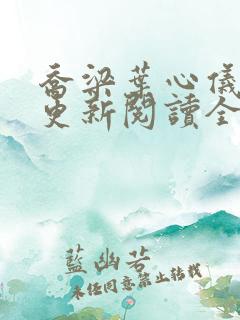 喬梁葉心儀
更新閱讀全
藍幽若
未經同意禁止轉載